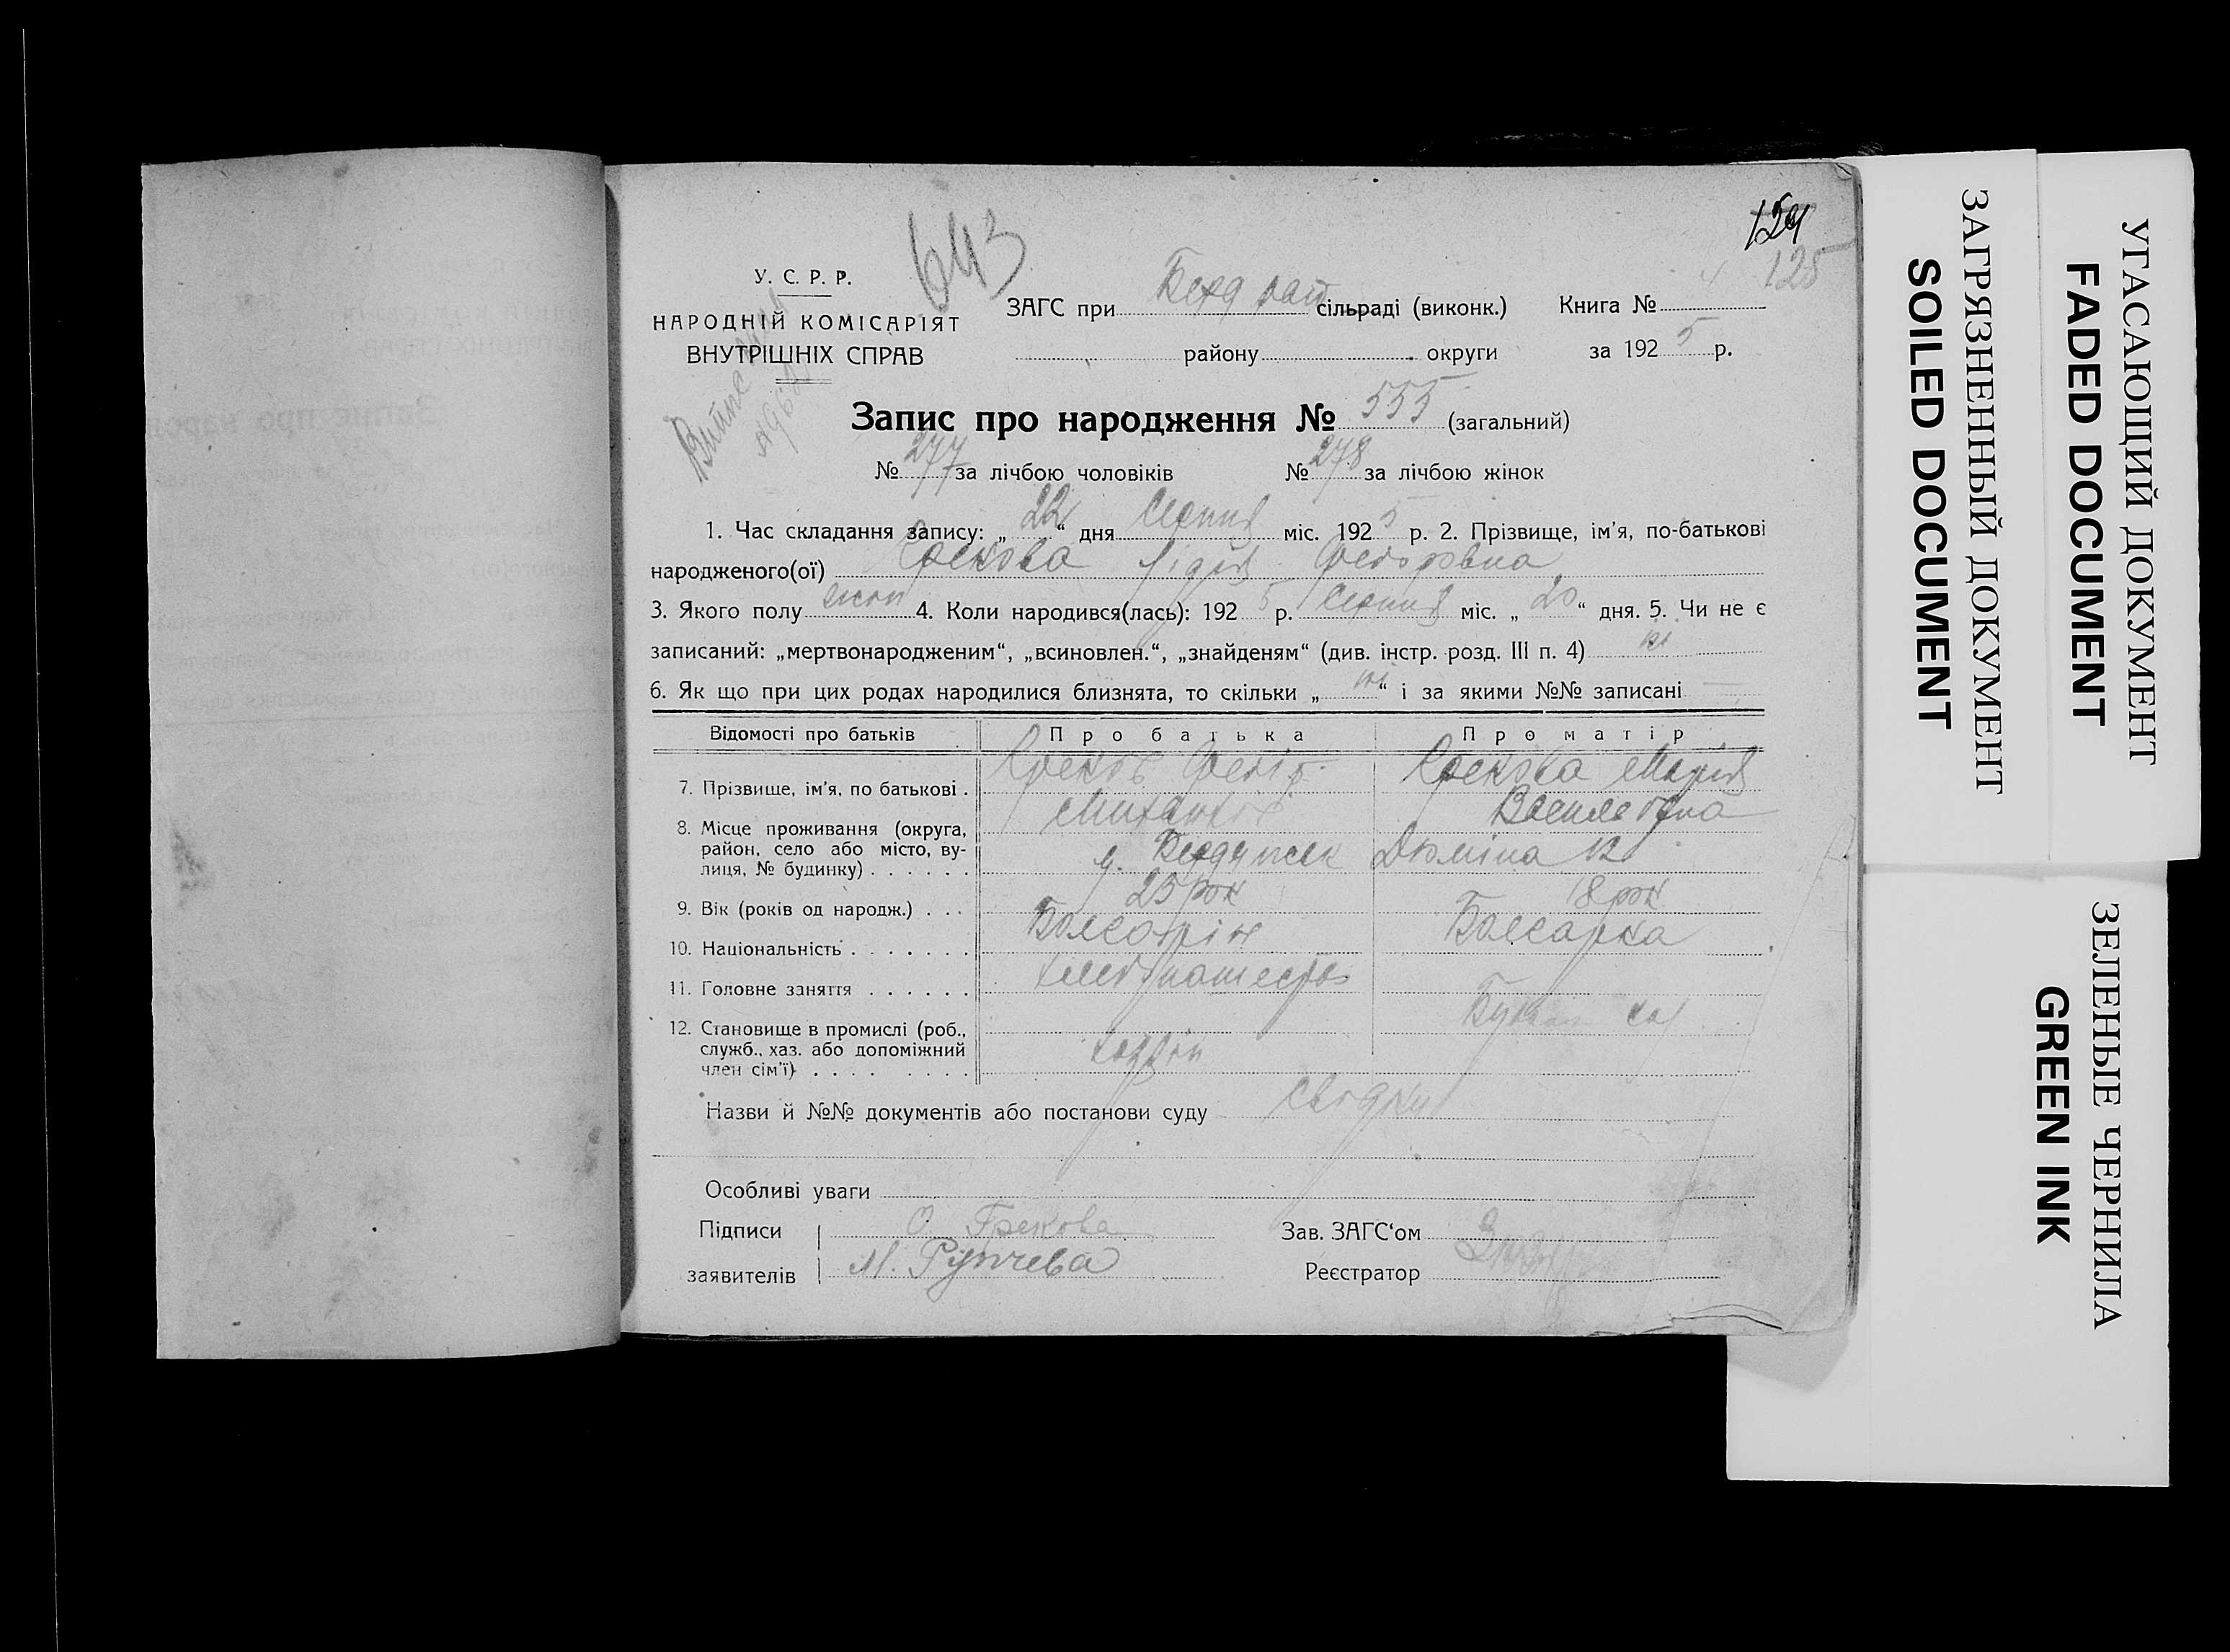 643
154
125
У. С. Р. Р.
НАРОДНІЙ КОМІСАРІЯТ
ВНУТРІШНІХ СПРАВ
ЗАГС при Берд рай сільраді (виконк.) Книга № 4
району округи за 1925 р.
Запис про народження № 555 (загальний)
№ 277 за лічбою чоловіків № 278 за лічбою жінок
1. Час складання запису: „22“ дня Серпня міс. 1925 р. 2. Прізвище, ім'я, по-батькові
народженого(ої) Грекова Лідія Федоровна
3. Якого полу жін 4. Коли народився(лась): 1925 р. Серпня міс. „20“ дня. 5. Чи не є
записаний: „мертвонародженим“, „всиновлен.“, „знайденям“ (див. інстр. розд. III п. 4) ні
6. Як що при цих родах народилися близнята, то скільки „ні“ і за якими №№ записані —
Відомості про батьків Про батька Про матір
7. Прізвище, ім'я, по батькові . Греков Федір Грекова Марія
Василевна
8. Місце проживання (округа,
район, село або місто, ву-
лиця, № будинку) . . . . . .
9. Вік (років од народж.) . . . 25 рок 18 рок
10. Національність . . . . . . . Болгарін Болгарка
11. Головне заняття . . . . . .
12. Становище в промислі (роб.,
служб., хаз. або допоміжний
член сім'ї) . . . . . . . .
Назви й №№ документів або постанови суду
Особливі уваги
Підписи О. Грекова Зав. ЗАГС'ом
заявителів М. Рупчева Реєстратор
ЗАГРЯЗНЕННЫЙ ДОКУМЕНТ
SOILED DOCUMENT
УГАСАЮЩИЙ ДОКУМЕНТ
FADED DOCUMENT
ЗЕЛЕНЫЕ ЧЕРНИЛА
GREEN INK